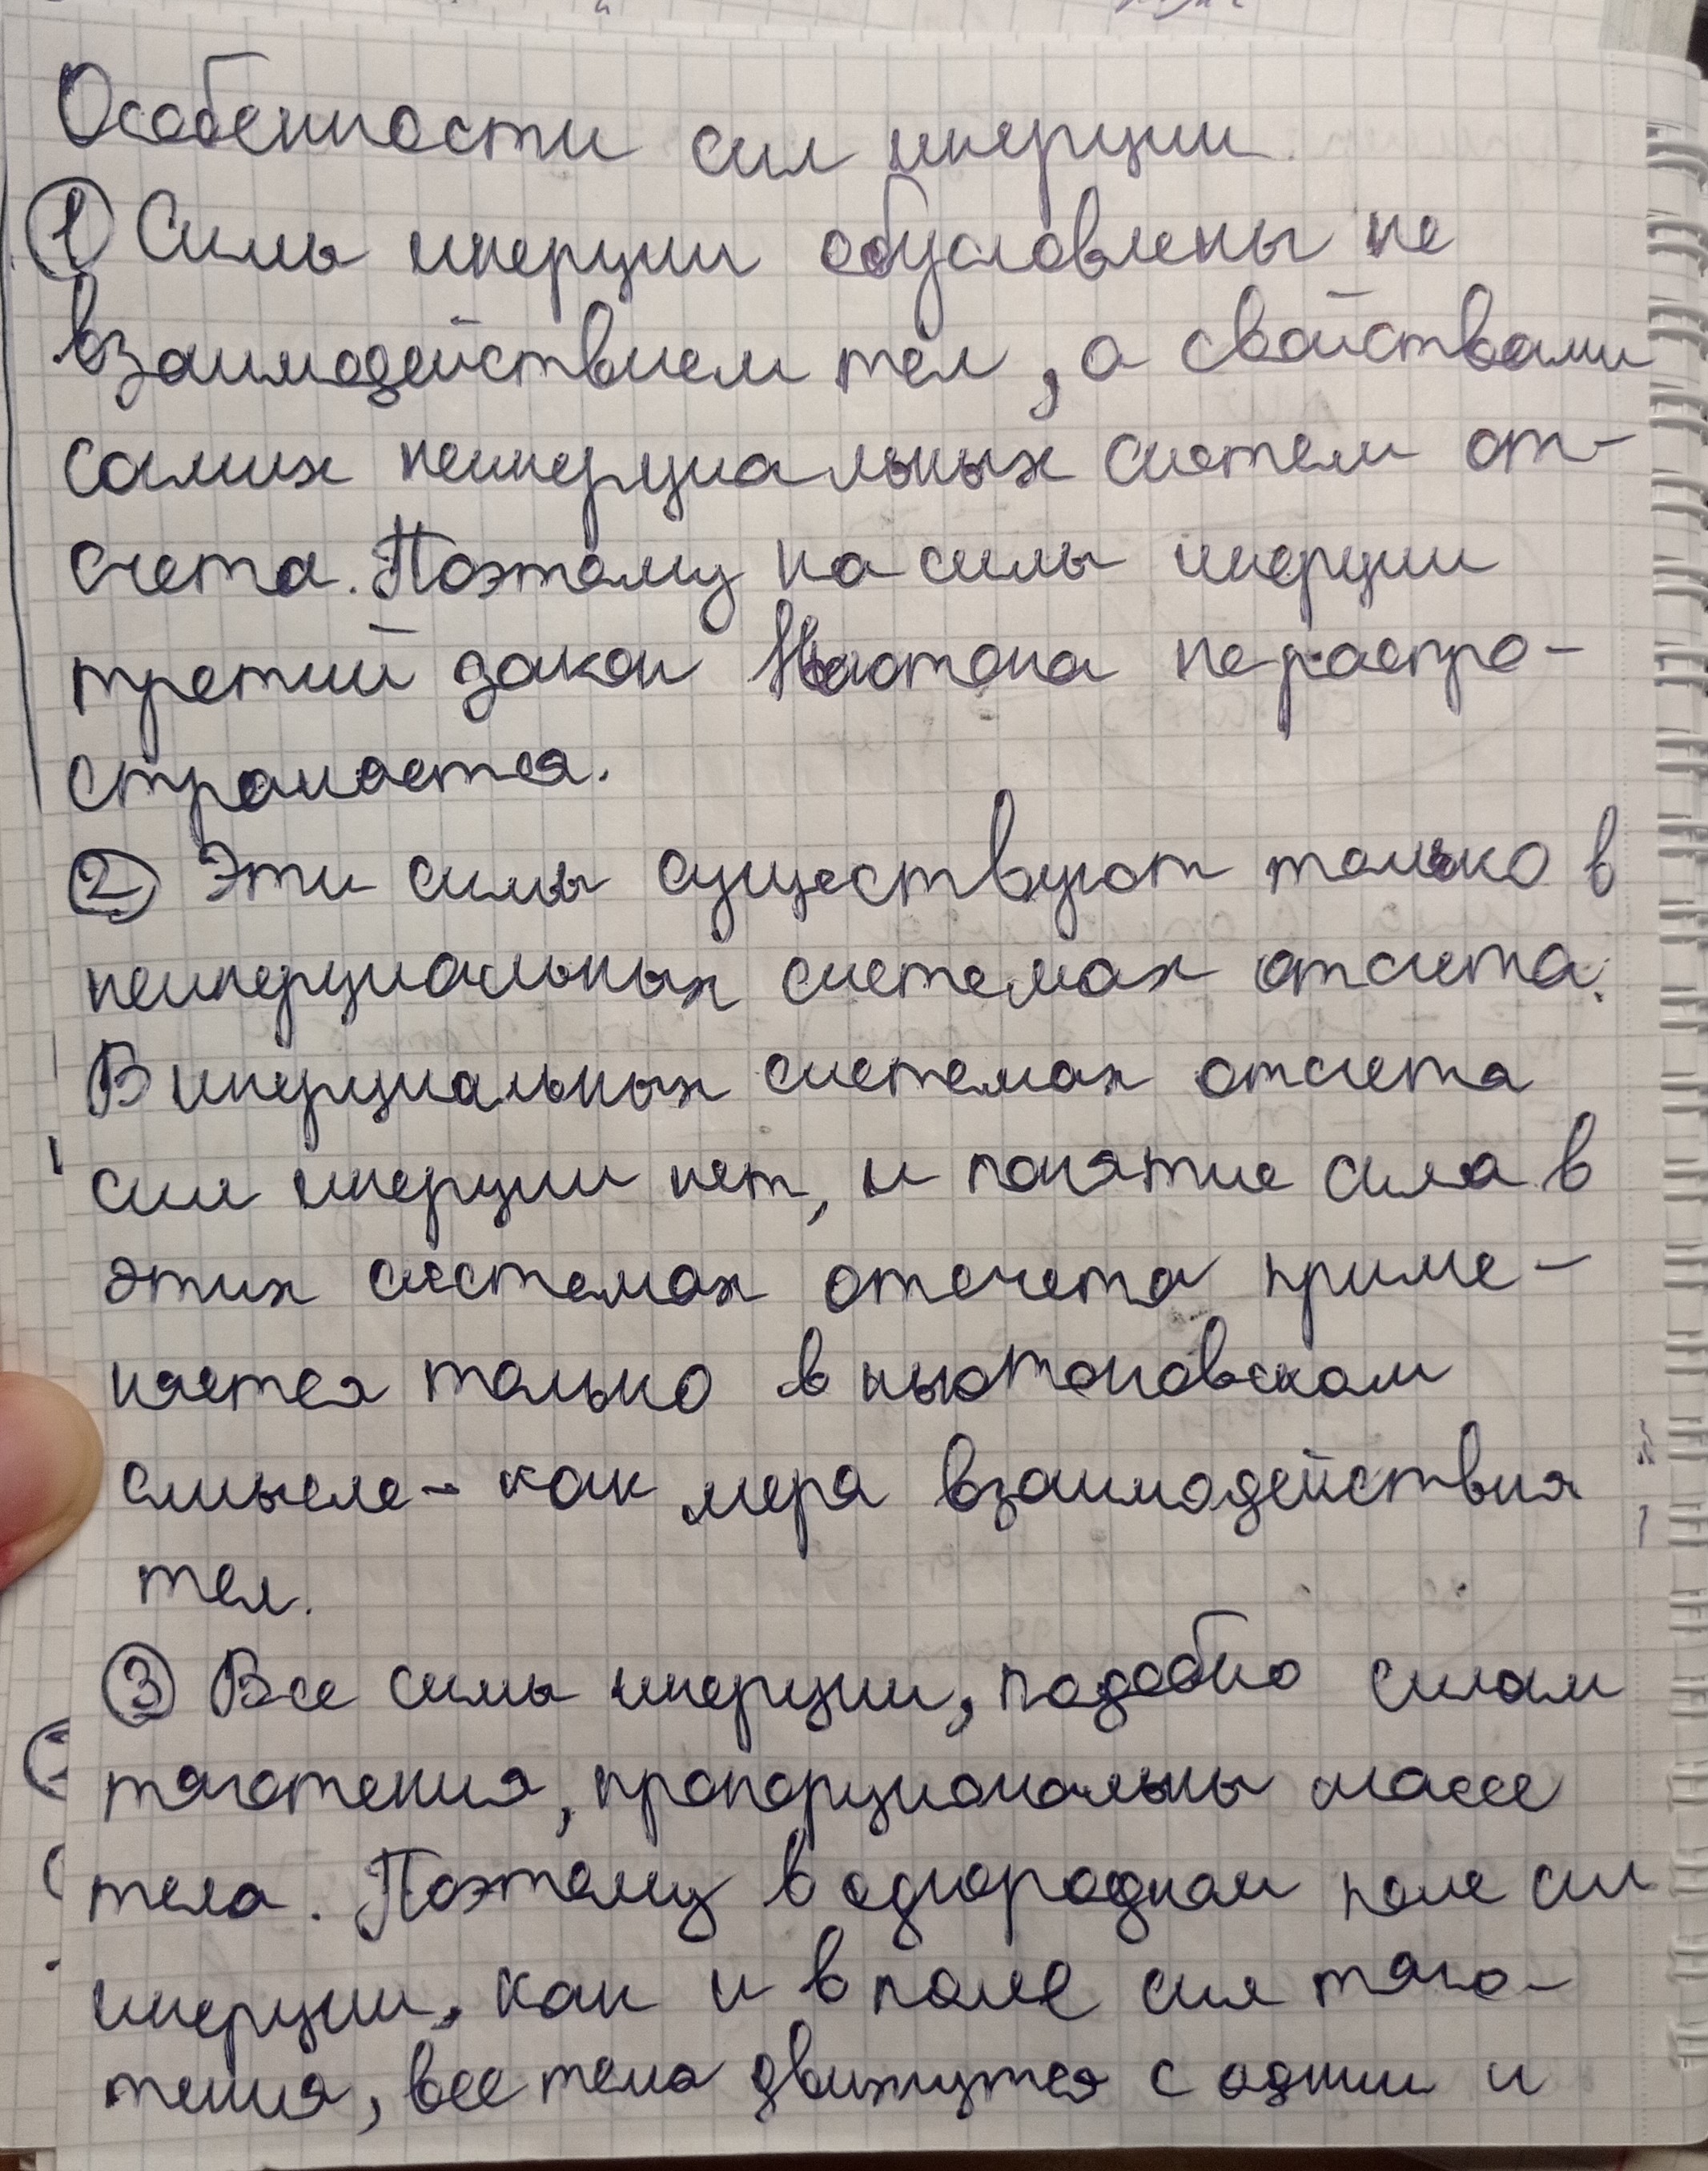 Особенности сил инерции.
① Силы инерции обусловлены не
взаимодействием тел, а свойствами
самих неинерциальных систем от-
счета. Поэтому на силы инерции
третий закон Ньютона не распро-
страняется.
② Эти силы существуют только в
неинерциальных системах отсчета.
В инерциальных системах отсчета
сил инерции нет, и понятие сила в
этих системах отсчета приме-
няется только в ньютоновском
смысле - как мера взаимодействия
тел.
③ Все силы инерции, подобно силам
тяготения, пропорциональны массе
тела. Поэтому в однородном поле сил
инерции, как и в поле сил тяго-
тения, все тела движутся с одним и